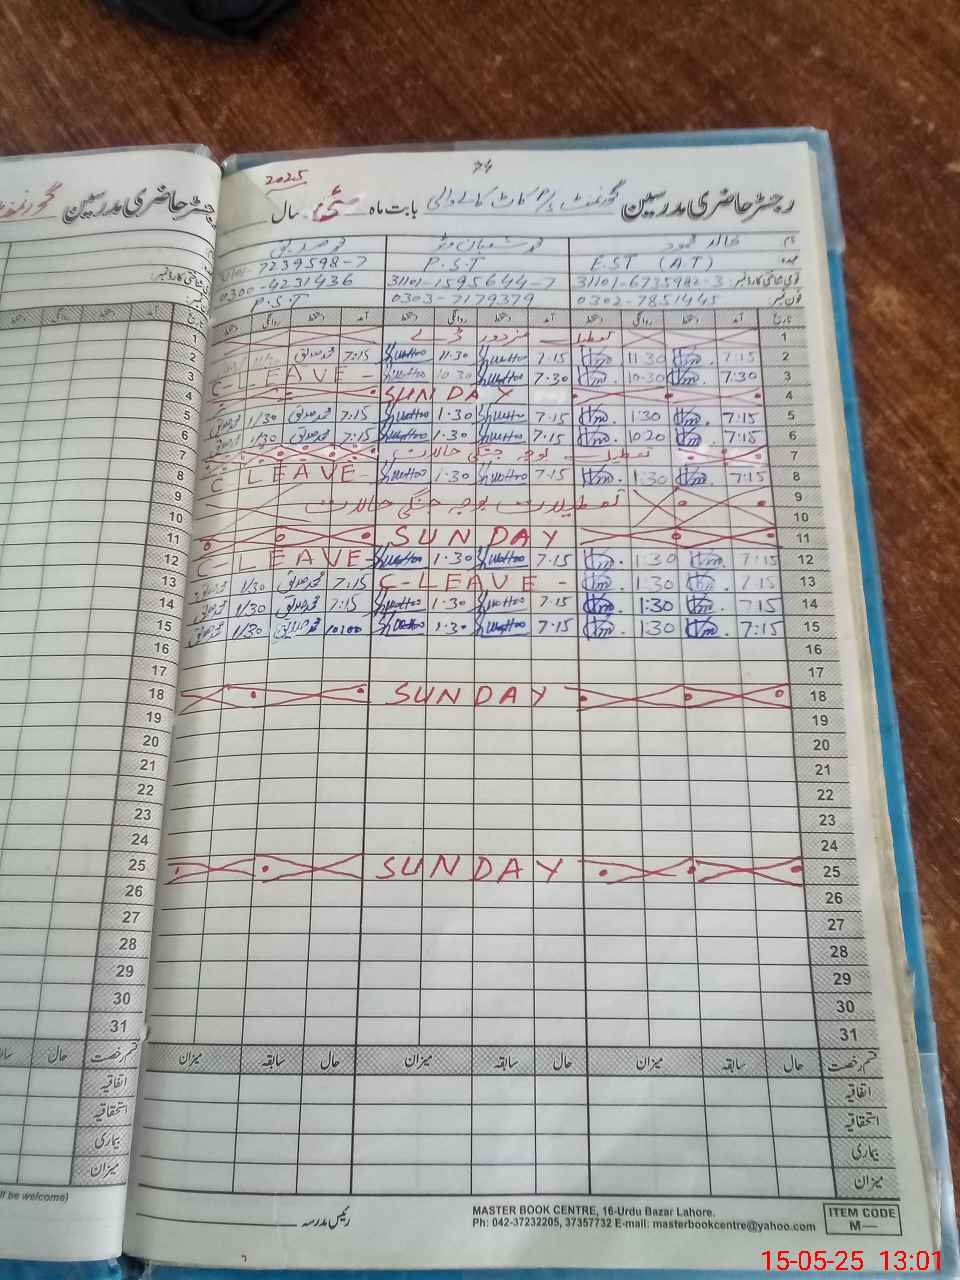 74
2025
رجسٹر حاضری مدرسین گورنمنٹ بابت ماہ مئی سال
نام خالد محمود محمد صدیق
عہدہ E.ST (A.T) P.S.T 31101-7239598-7
قومی شناختی کارڈ نمبر: 31101-6735982-3 31101-1595644-7 0300-4231436
فون نمبر: 0302-7851445 0303-7179379 P.S.T
تاریخ آمد دستخط روانگی دستخط آمد دستخط روانگی دستخط آمد دستخط روانگی دستخط
1 تعطیل مزدور ڈے
2 7:15 11:30 7:15 11:30 7:15 محمد صدیق
3 7:30 10:30 7:30 10:30 C-LEAVE-
4 SUNDAY
5 7:15 1:30 7:15 1:30 7:15 محمد صدیق 1/30 محمد صدیق
6 7:15 10:20 7:15 1:30 7:15 محمد صدیق 1/30 محمد صدیق
7 تعطیل بوجہ جنگی حالات
8 7:15 1:30 7:15 1:30 C-LEAVE-
9 تعطیلات بوجہ جنگی حالات
10
11 SUNDAY
12 7:15 1:30 7:15 1:30 C-LEAVE-
13 7:15 1:30 C-LEAVE- 7:15 محمد صدیق 1/30 محمد صدیق
14 7:15 1:30 7:15 1:30 7:15 محمد صدیق 1/30 محمد صدیق
15 7:15 1:30 7:15 1:30 10:00 محمد صدیق 1/30 محمد صدیق
16
17
18 SUNDAY
19
20
21
22
23
24
25 SUNDAY
26
27
28
29
30
31
قسم رخصت حال سابقہ میزان حال سابقہ میزان حال سابقہ میزان
اتفاقیہ
استحقاقیہ
بیماری
میزان
رئیس مدرسہ
MASTER BOOK CENTRE, 16-Urdu Bazar Lahore.
Ph: 042-37232205, 37357732 E-mail: masterbookcentre@yahoo.com
ITEM CODE
M—
رجسٹر حاضری مدرسین گورنمنٹ
ll be welcome)
15-05-25 13:01